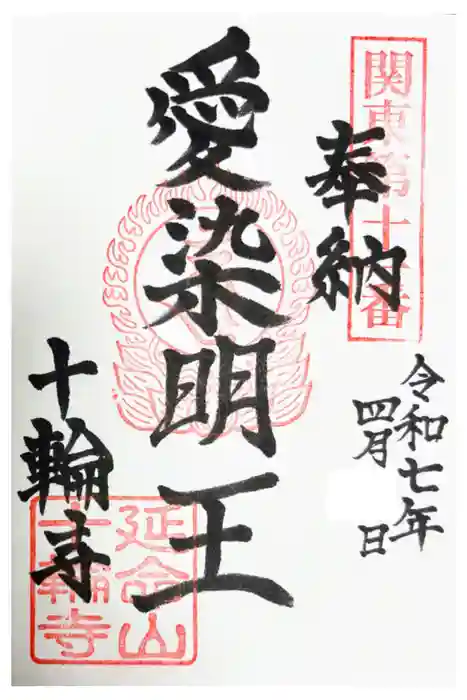 関東第十 番
奉納
愛染明王
令和七年
四月 日
十輪寺
延命山
十輪寺